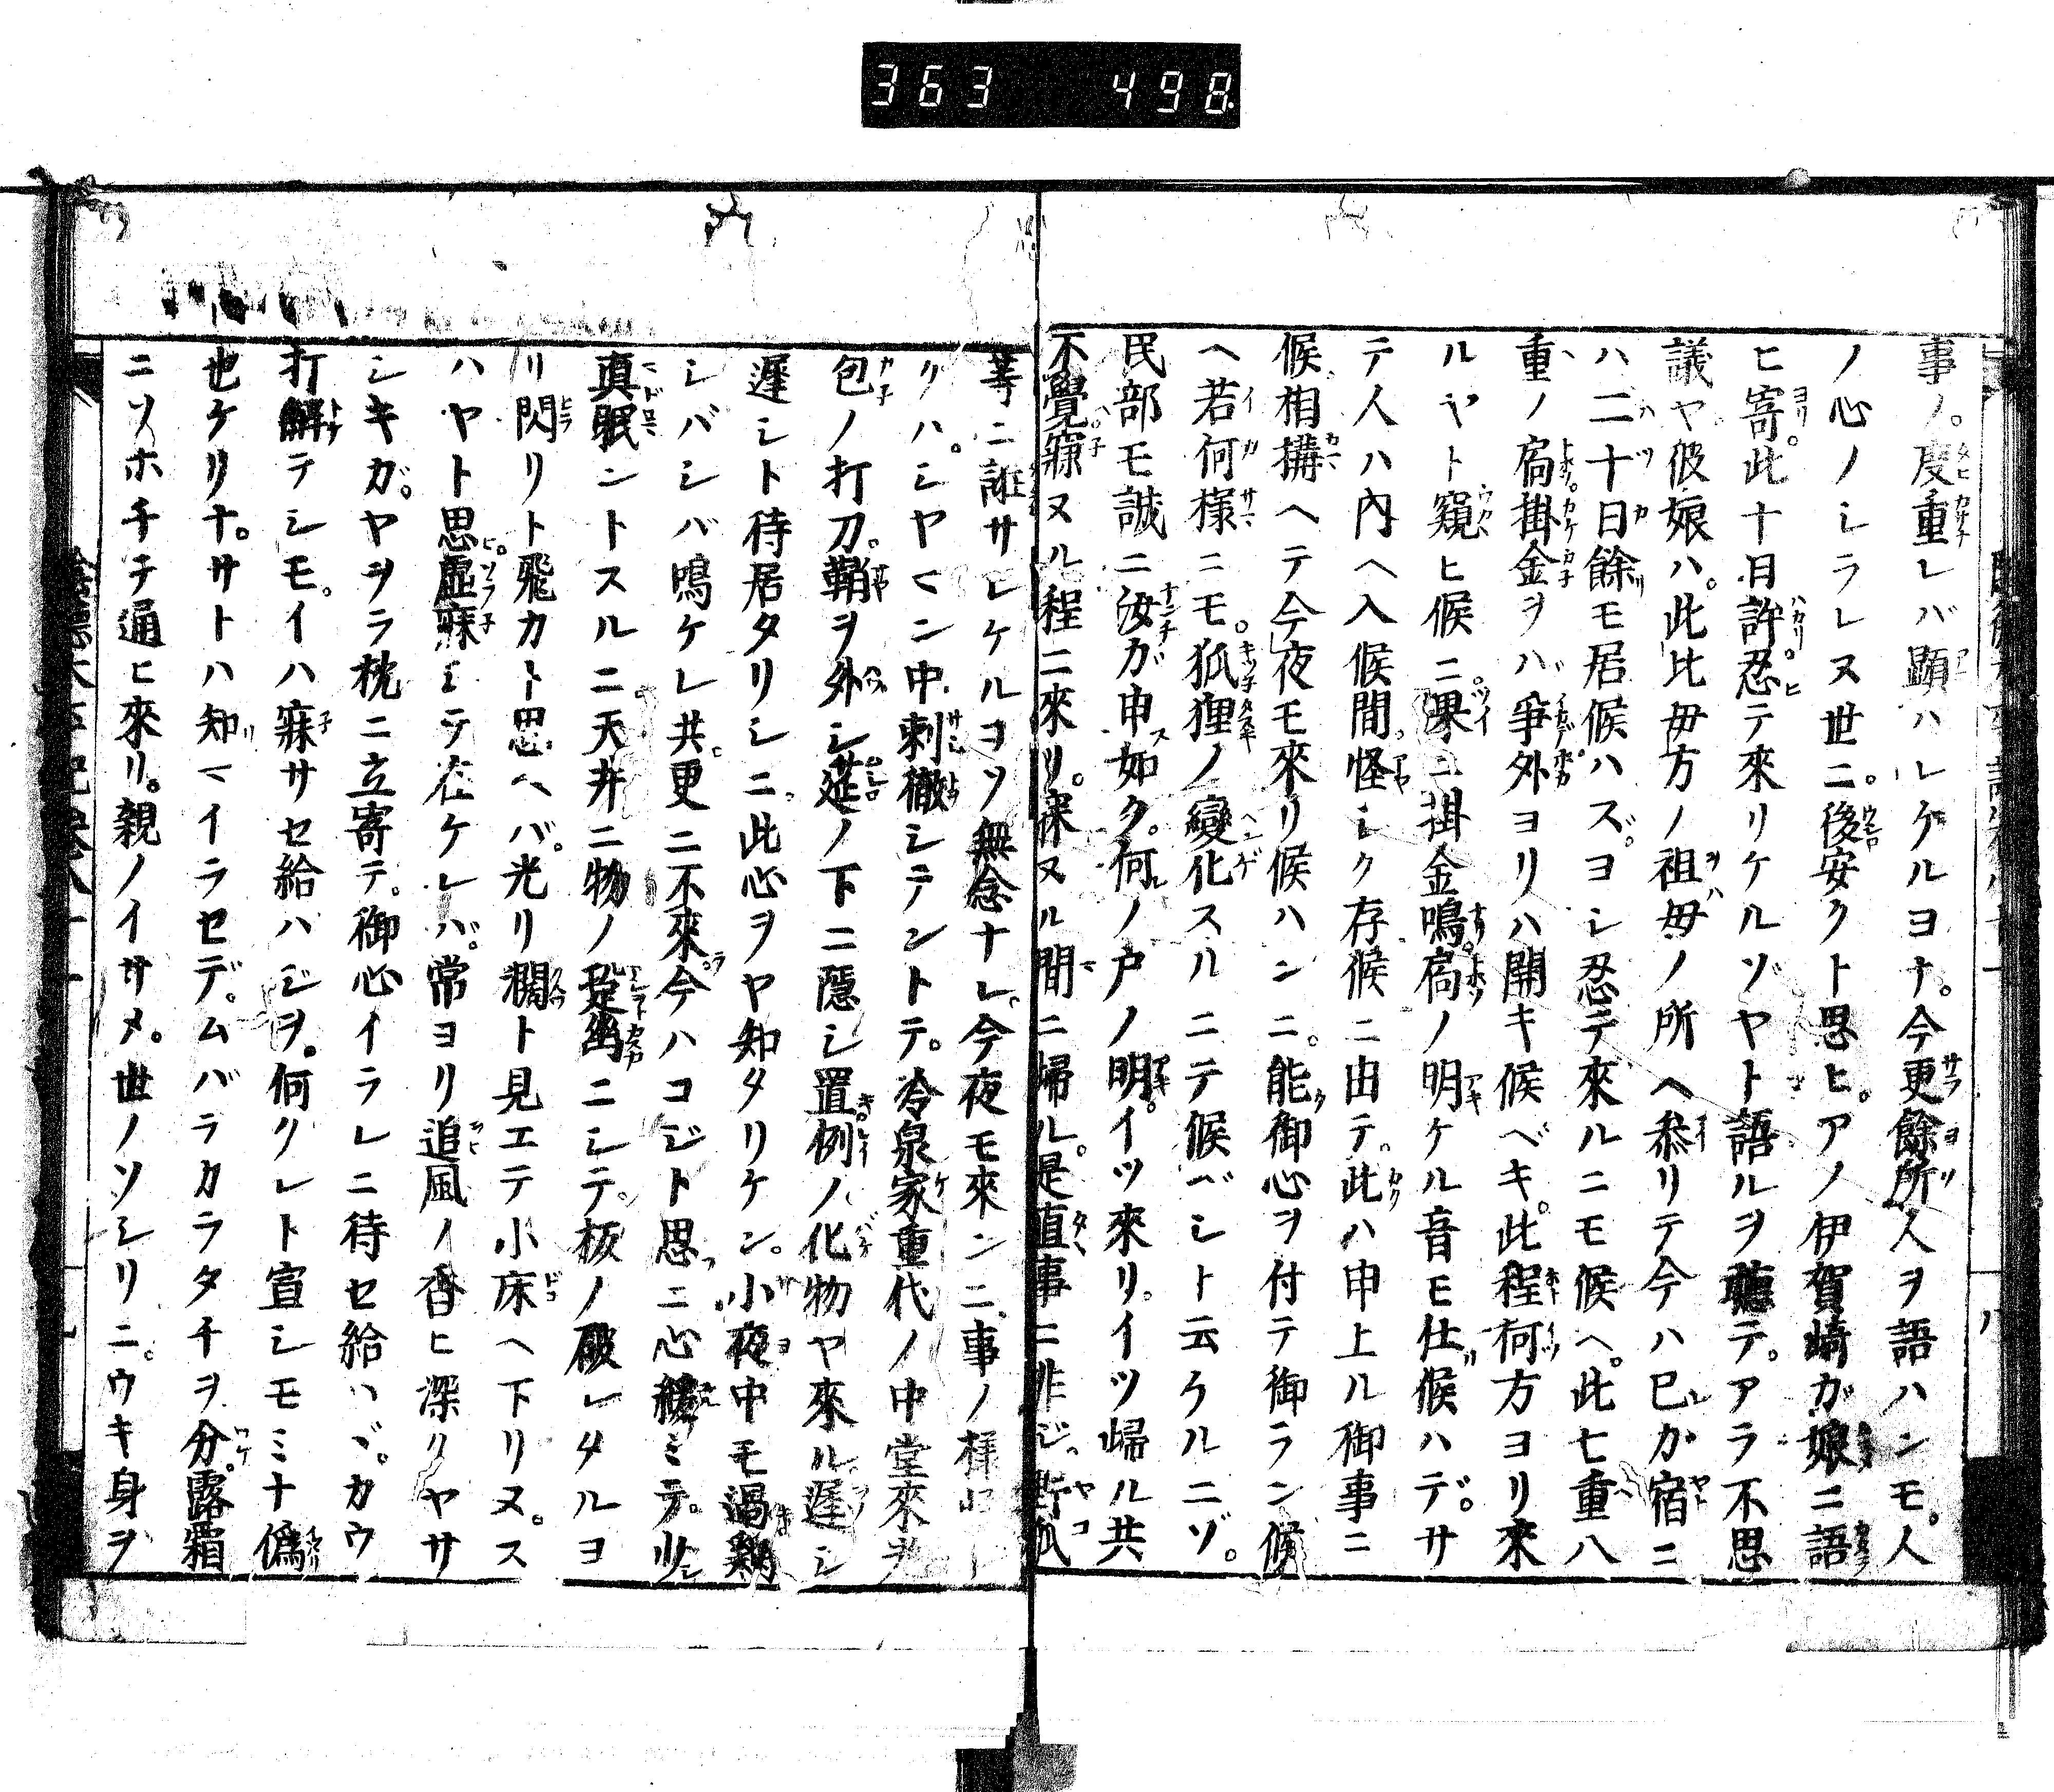 363 498
事ノ度重レバ顕ハレケルヨナ。今更餘所人ヲ語ハンモ。人
ノ心ノシラレヌ世ニ。後安クト思ヒ。アノ伊賀崎ガ娘ニ語
ヒ寄。此十日許忍テ來リケルゾヤト語ルヲ聽テ。アラ不思
議ヤ彼娘ハ。此比毋方ノ祖毋ノ所ヘ叅リテ今ハ巳カ宿ニ
ハ二十日餘モ居候ハズ。ヨシ忍テ來ルニモ候ヘ。此七重八
重ノ扃掛金ヲハ爭外ヨリハ開キ候ベキ。此程何方ヨリ來
ルヤト窺ヒ候ニ。果ニ掛金鳴。扃ノ明ケル音モ仕候ハデ。サ
テ人ハ內ヘ入候間怪シク存候ニ由テ。此ハ申上ル御事ニ
候相搆ヘテ今夜モ來リ候ハンニ。能御心ヲ付テ御ラン候
ヘ若何樣ニモ。狐狸ノ變化スルニテ候ベシト云ケルニゾ。
民部モ誠ニ汝ガ申如ク。何ノ戸ノ明。イツ來リ。イツ歸ル共
不覺寐ヌル程ニ來リ。寐ヌル間ニ歸ル。是直事ニ非ジ。野狐
等ニ誑サレケルヲソ無念ナレ。今夜モ來ンニ、事ノ樣
クハ。シヤマン中刺徹シテントテ。冷泉家重代ノ中堂來光
包ノ打刀。鞘ヲ外シ莚ノ下ニ隱シ置。例ノ化物ヤ來ル遲シ
遲シト待居タリシニ此心ヲヤ知タリケン。小夜中モ過鷄
シバシバ鳴ケレ共。更ニ不來。今ハコジト思ニ心緩ミテ。少
真眠ントスルニ。天井ニ物ノ跫幽ニシテ。板ノ破レタルヨ
リ閃リト飛カト思ヘバ。光リ欄ト見エテ小床ヘ下リヌ。ス
ハヤト思虛寐ミテ在ケレバ。常ヨリ追風ノ香ヒ深クヤサ
シキガ。ヤヲラ枕ニ立寄テ。御心イラレニ待セ給ハヾ。カウ
打解テシモ。イハ寐サセ給ハジヲ。何クレト宣シモミナ僞
也ケリナ。サトハ知マイラセデ。ムバラカラタチヲ分。露霜
ニソホチテ通ヒ來リ。親ノイサメ。世ノソシリニ。ウキ身ヲ